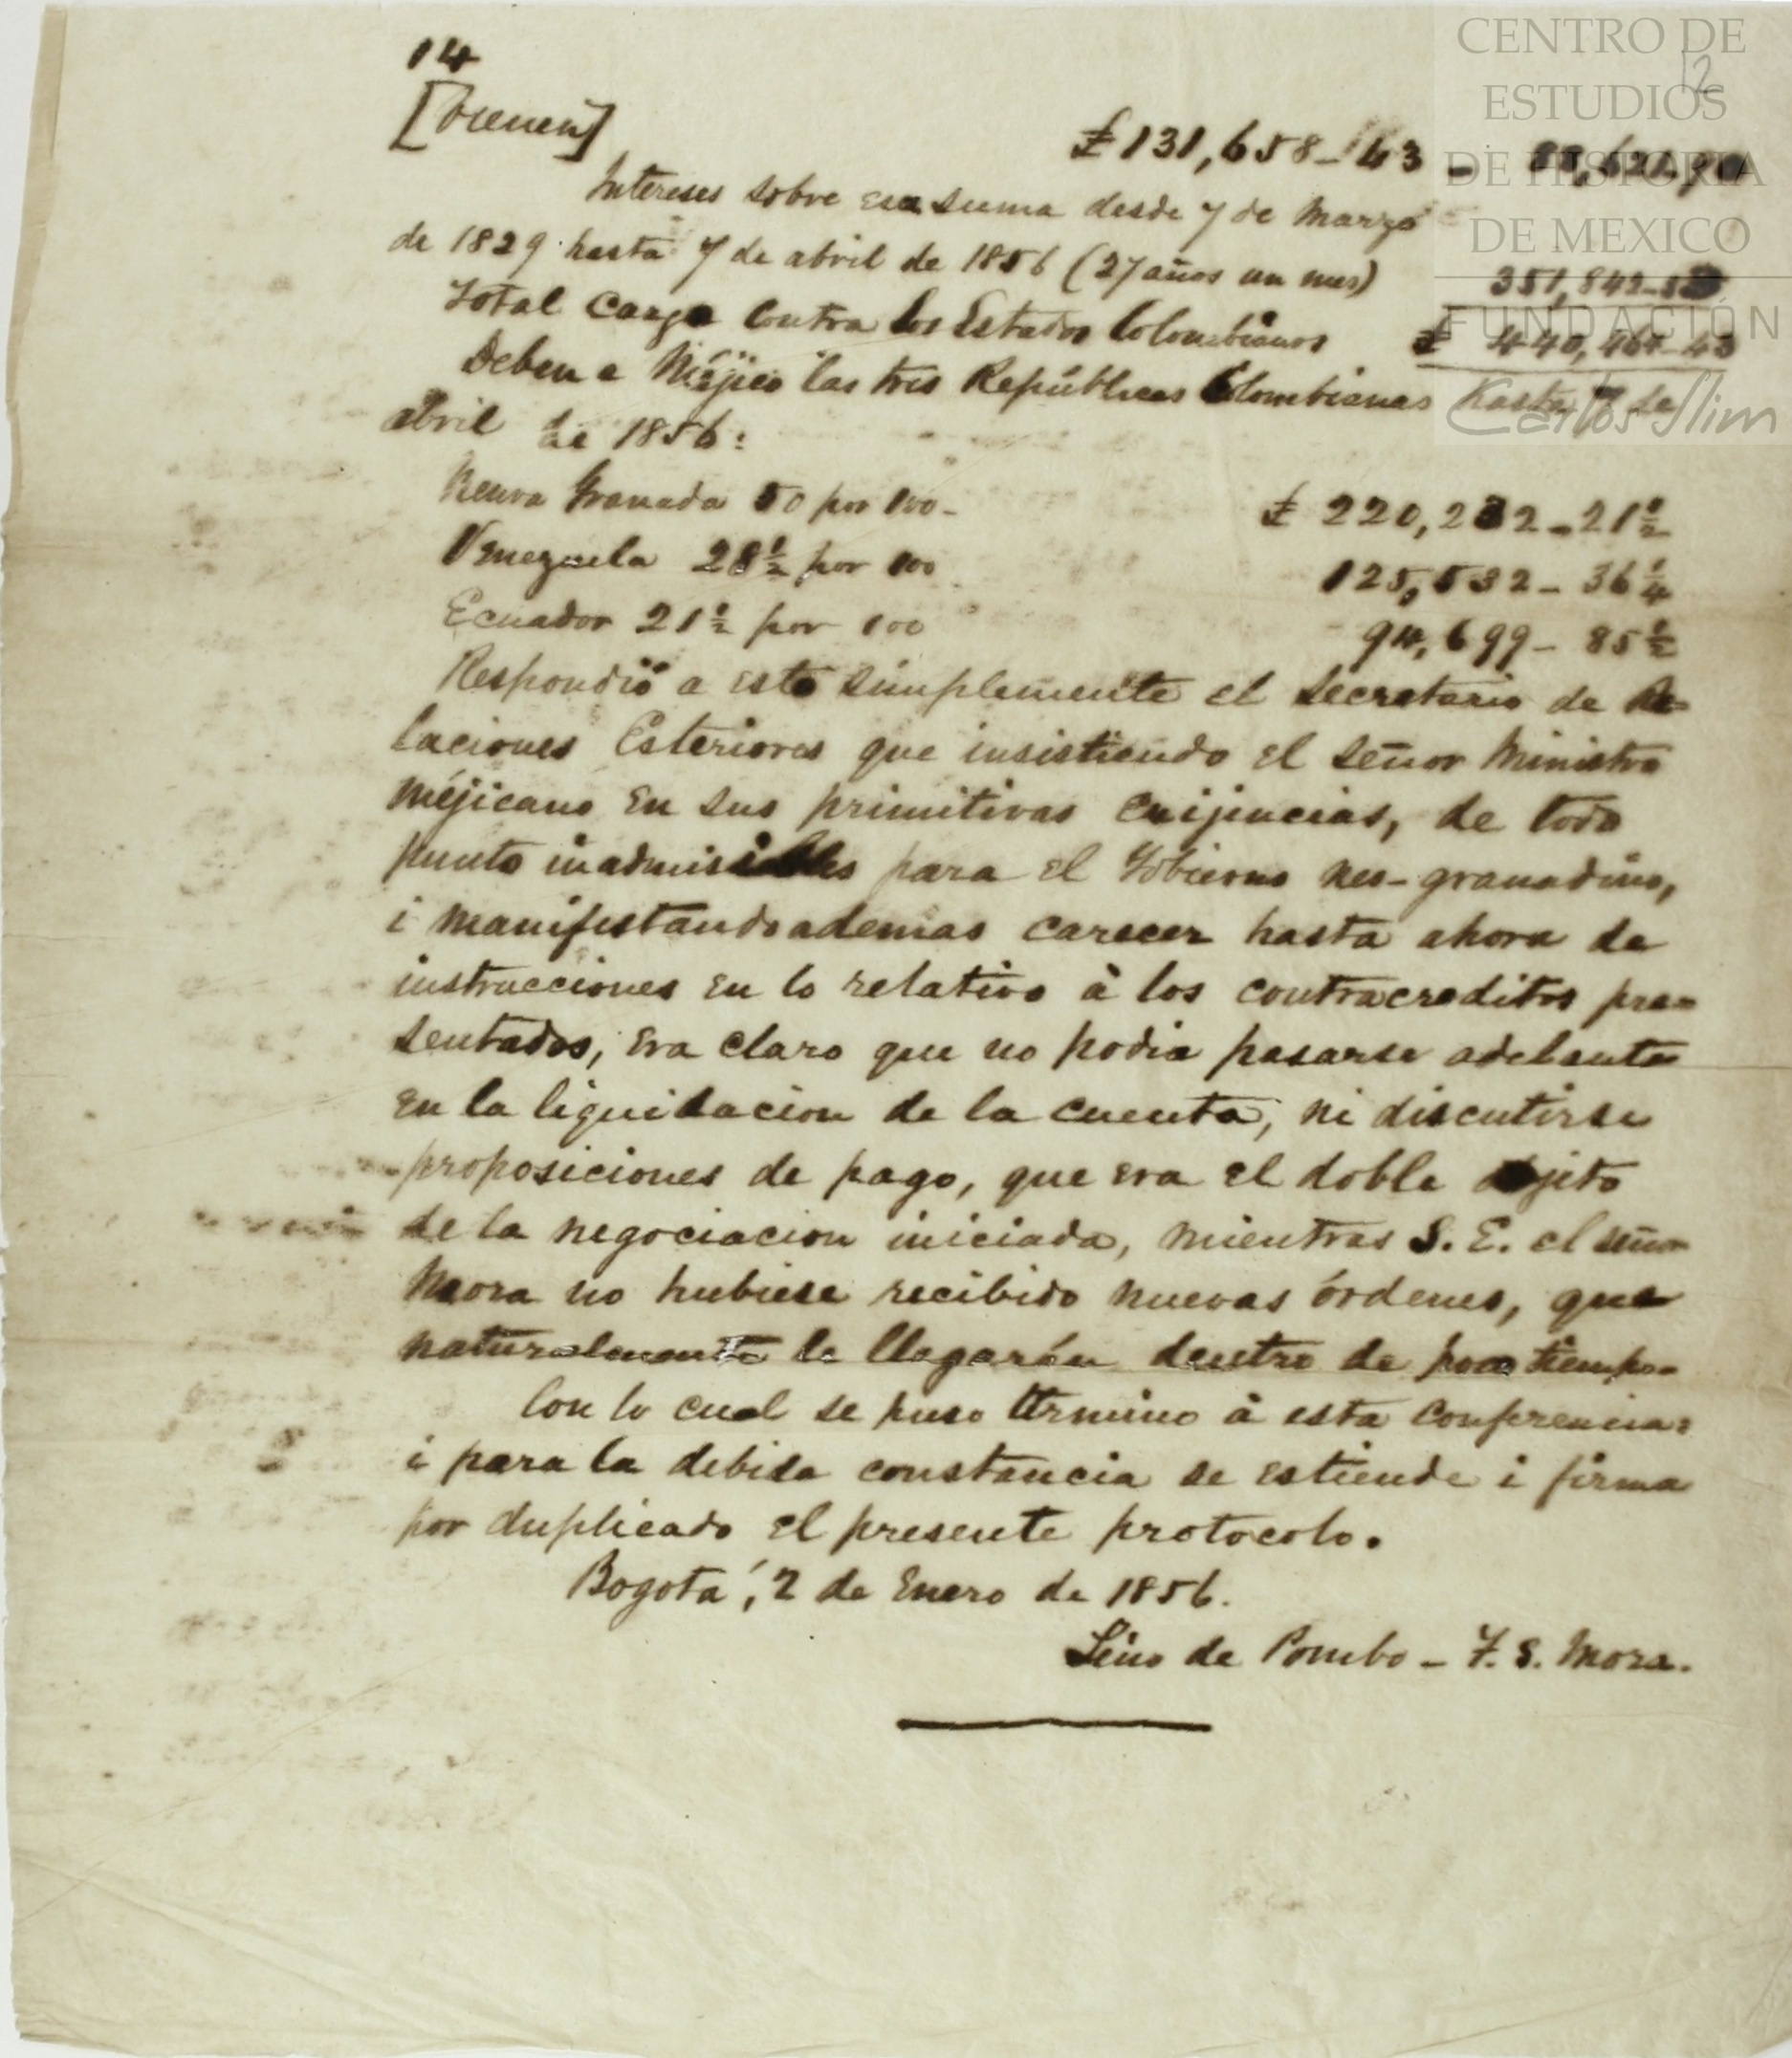 14
12
[Vienen]
£ 131,658-43 -
Intereses sobre esa suma desde 7 de Marzo
de 1829 hasta 7 de abril de 1856 (27 años un mes) 351,842-53
Total Cargo contra los Estados Colombianos £ 440,464-43
Deben a Méjico las tres Repúblicas Colombianas hasta 7 de
abril de 1856:
Nueva Granada 50 por 100- £ 220,232-21½
Venezuela 28½ por 100 125,532-36¼
Ecuador 21½ por 100 94,699-85½
Respondió a esto simplemente el secretario de Re-
laciones Esteriores que insistiendo el señor Ministro
méjicano en sus primitivas exijencias, de todo
punto inadmisibles para el Gobierno neo-granadino,
i manifestando ademas carecer hasta ahora de
instrucciones en lo relativo à los contracreditos pre-
sentados, era claro que no podia pasarse adelante
en la liquidacion de la cuenta, ni discutirse
proposiciones de pago, que era el doble objeto
de la negociacion iniciada, mientras S. E. el señor
Mora no hubiese recibido nuevas órdenes, que
naturalmente le llegarán dentro de poco tiempo-
Con lo cual se puso término à esta conferencia:
i para la debida constancia se estiende i firma
por duplicado el presente protocolo.
Bogotá, 2 de Enero de 1856.
Lino de Pombo - F. S. Mora.
CENTRO DE
ESTUDIOS
DE HISTORIA
DE MEXICO
FUNDACIÓN
Carlos Slim